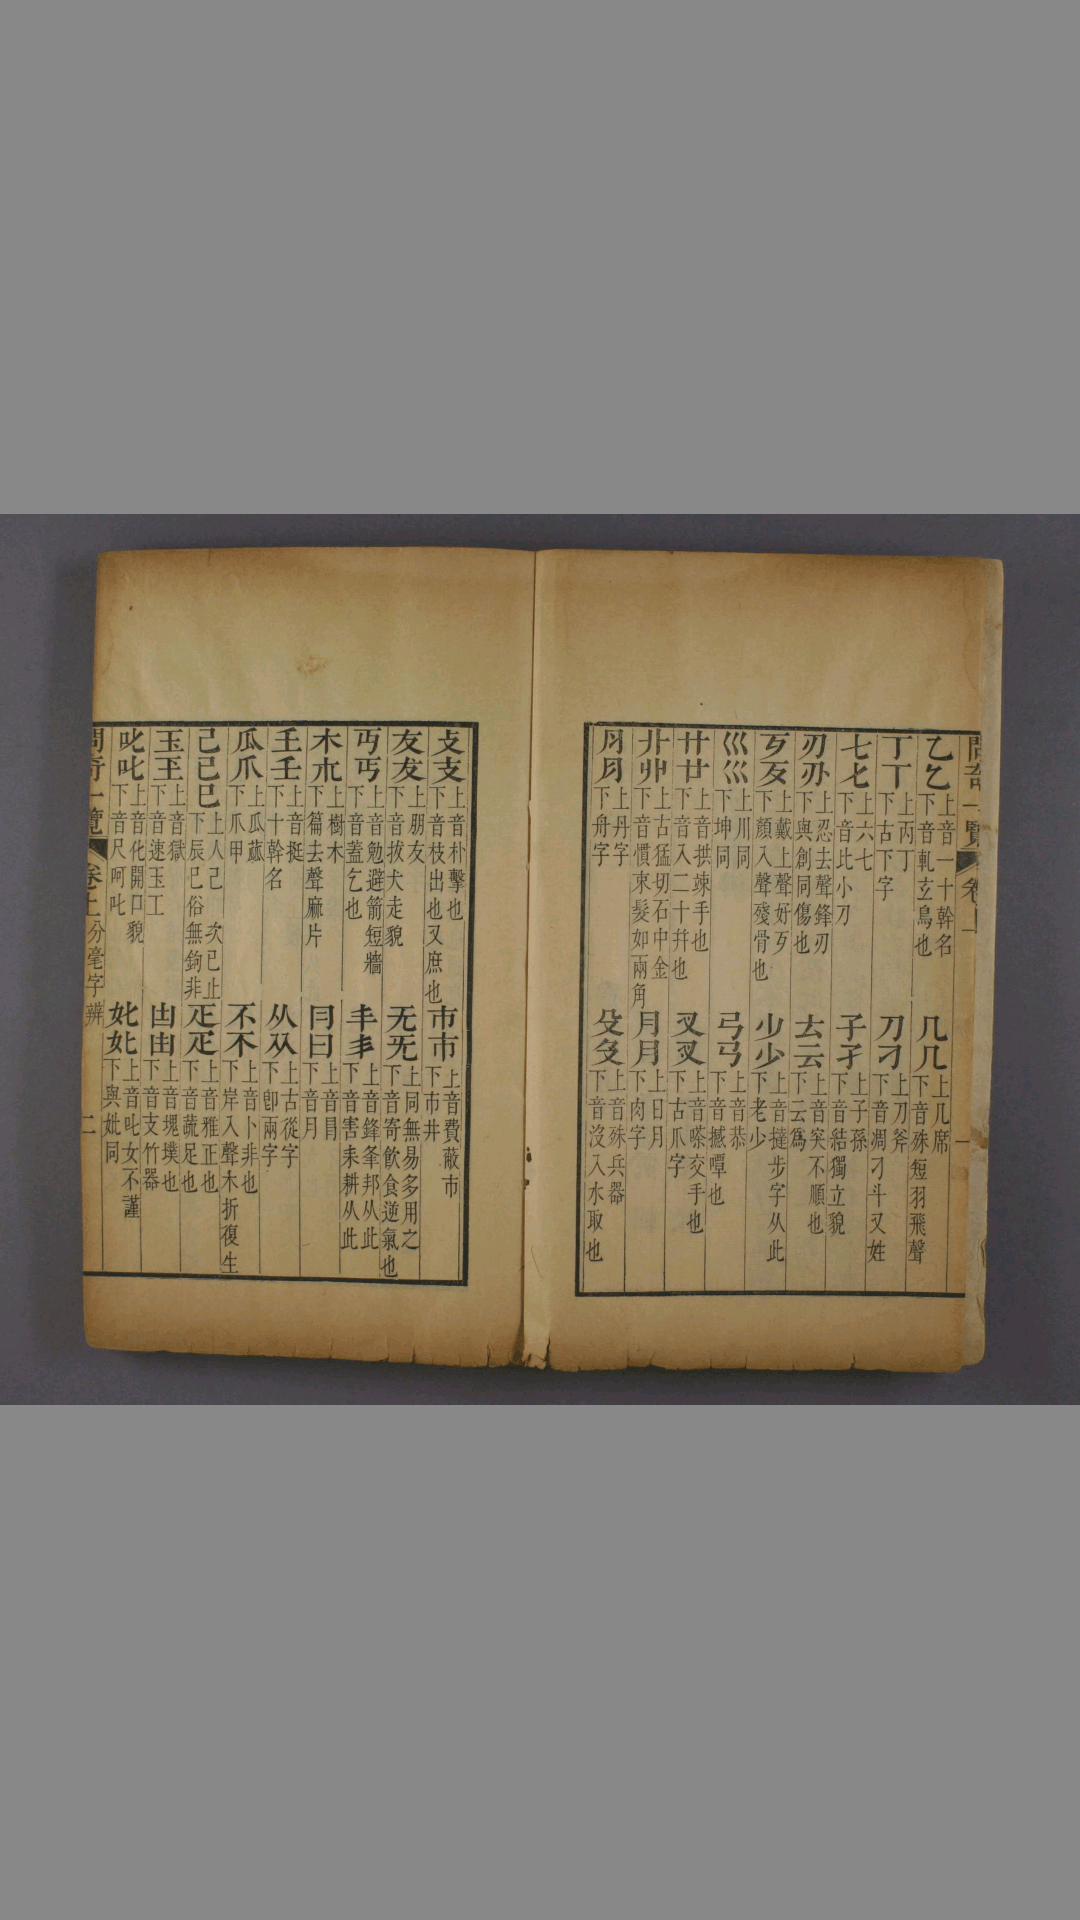 問奇一覽 卷上 一
乙乞 上音一十幹名 下音軋玄鳥也 几⺇ 上几席 下音殊短羽飛聲
丁丅 上丙丁 下古下字 刀刁 上刀斧 下音凋刁斗又姓
七𠤎 上六七 下音比小刀 子孑 上子孫 下音結獨立貌
刃刅 上忍去聲鋒刃 下與創同傷也 𠫓云 上音突不順也 下云爲
丂歹 上戴上聲好歹 下顏入聲殘骨也 𣥂少 上音撻步字从此 下老少
巛巛 上川同 下坤同 弓𢎘 上音恭 下音撼嘾也
廾廿 上音拱竦手也 下音入二十幷也 叉㕚 上音嗏交手也 下古爪字
卝丱 上古猛切石中金 下音慣束髮如兩角 月⺼ 上日月 下肉字
⺝⺼ 上丹字 下舟字 殳𠬛 上音殊兵器 下音沒入水取也
攴支 上音朴擊也 下音枝出也又庶也 巿市 上音費蔽巿 下市井
友犮 上朋友 下音拔犬走貌 无旡 上同無易多用之 下音寄飮食逆氣也
丏丐 上音勉避箭短牆 下音蓋乞也 丰丯 上音鋒夆邦从此 下音害耒耕从此
木𣎳 上樹木 下篇去聲麻片 冃曰 上音冒 下音月
𡈼壬 上音挺 下十幹名 从㒳 上古從字 下卽兩字
瓜爪 上瓜蓏 下爪甲 不𣎴 上音卜非也 下岸入聲木折復生
己已巳 上人己 次已止 下辰巳俗無鉤非 疋疋 上音雅正也 下音蔬足也
玉王 上音獄 下音速玉工 凷由 上音塊墣也 下音支竹器
𠮟叱 上音化開口貌 下音尺呵叱 𡚧妣 上音叱女不謹 下與妣同
問奇一覽 卷上 分毫字辨 二